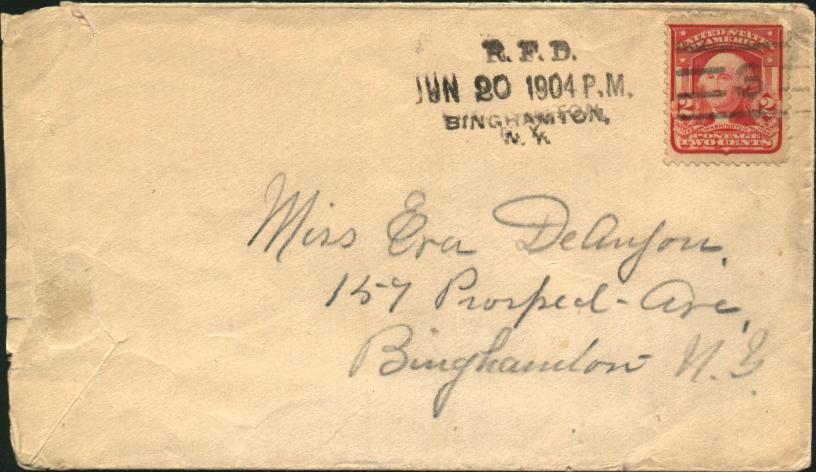 R.F.D.
JUN 20 1904 P.M.
BINGHAMTON,
N.Y.
UNITED STATES
OF AMERICA
2 2
WASHINGTON
POSTAGE
TWO CENTS
Miss Eva
157 Prospect Ave,
Binghamton N.Y.